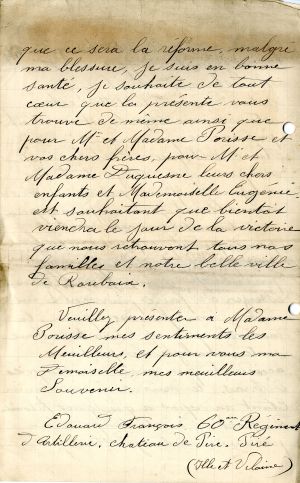 que ce sera la réforme, malgre
ma blessure, je suis en bonne
santé, je souhaite de tout
cœur que la presente vous
trouve de même ainsi que
pour Mr et Madame Pousse et
vos chers frères, pour Mr et
Madame Duquesne leurs chers
enfants et Mademoiselle Eugénie
et souhaitant que bientôt
viendra le jour de la victoire
que nous retrouvont tous nos
familles et notre belle ville
de Roubaix.
Veuillez presenter a Madame
Pousse mes sentiments les
Meuilleurs, et pour vous ma
demoiselle, mes meuilleurs
Souvenir.
Edouard François, 60me Régiment
d'Artillerie, chateau de Piré, Piré
(Ille et Vilaine)